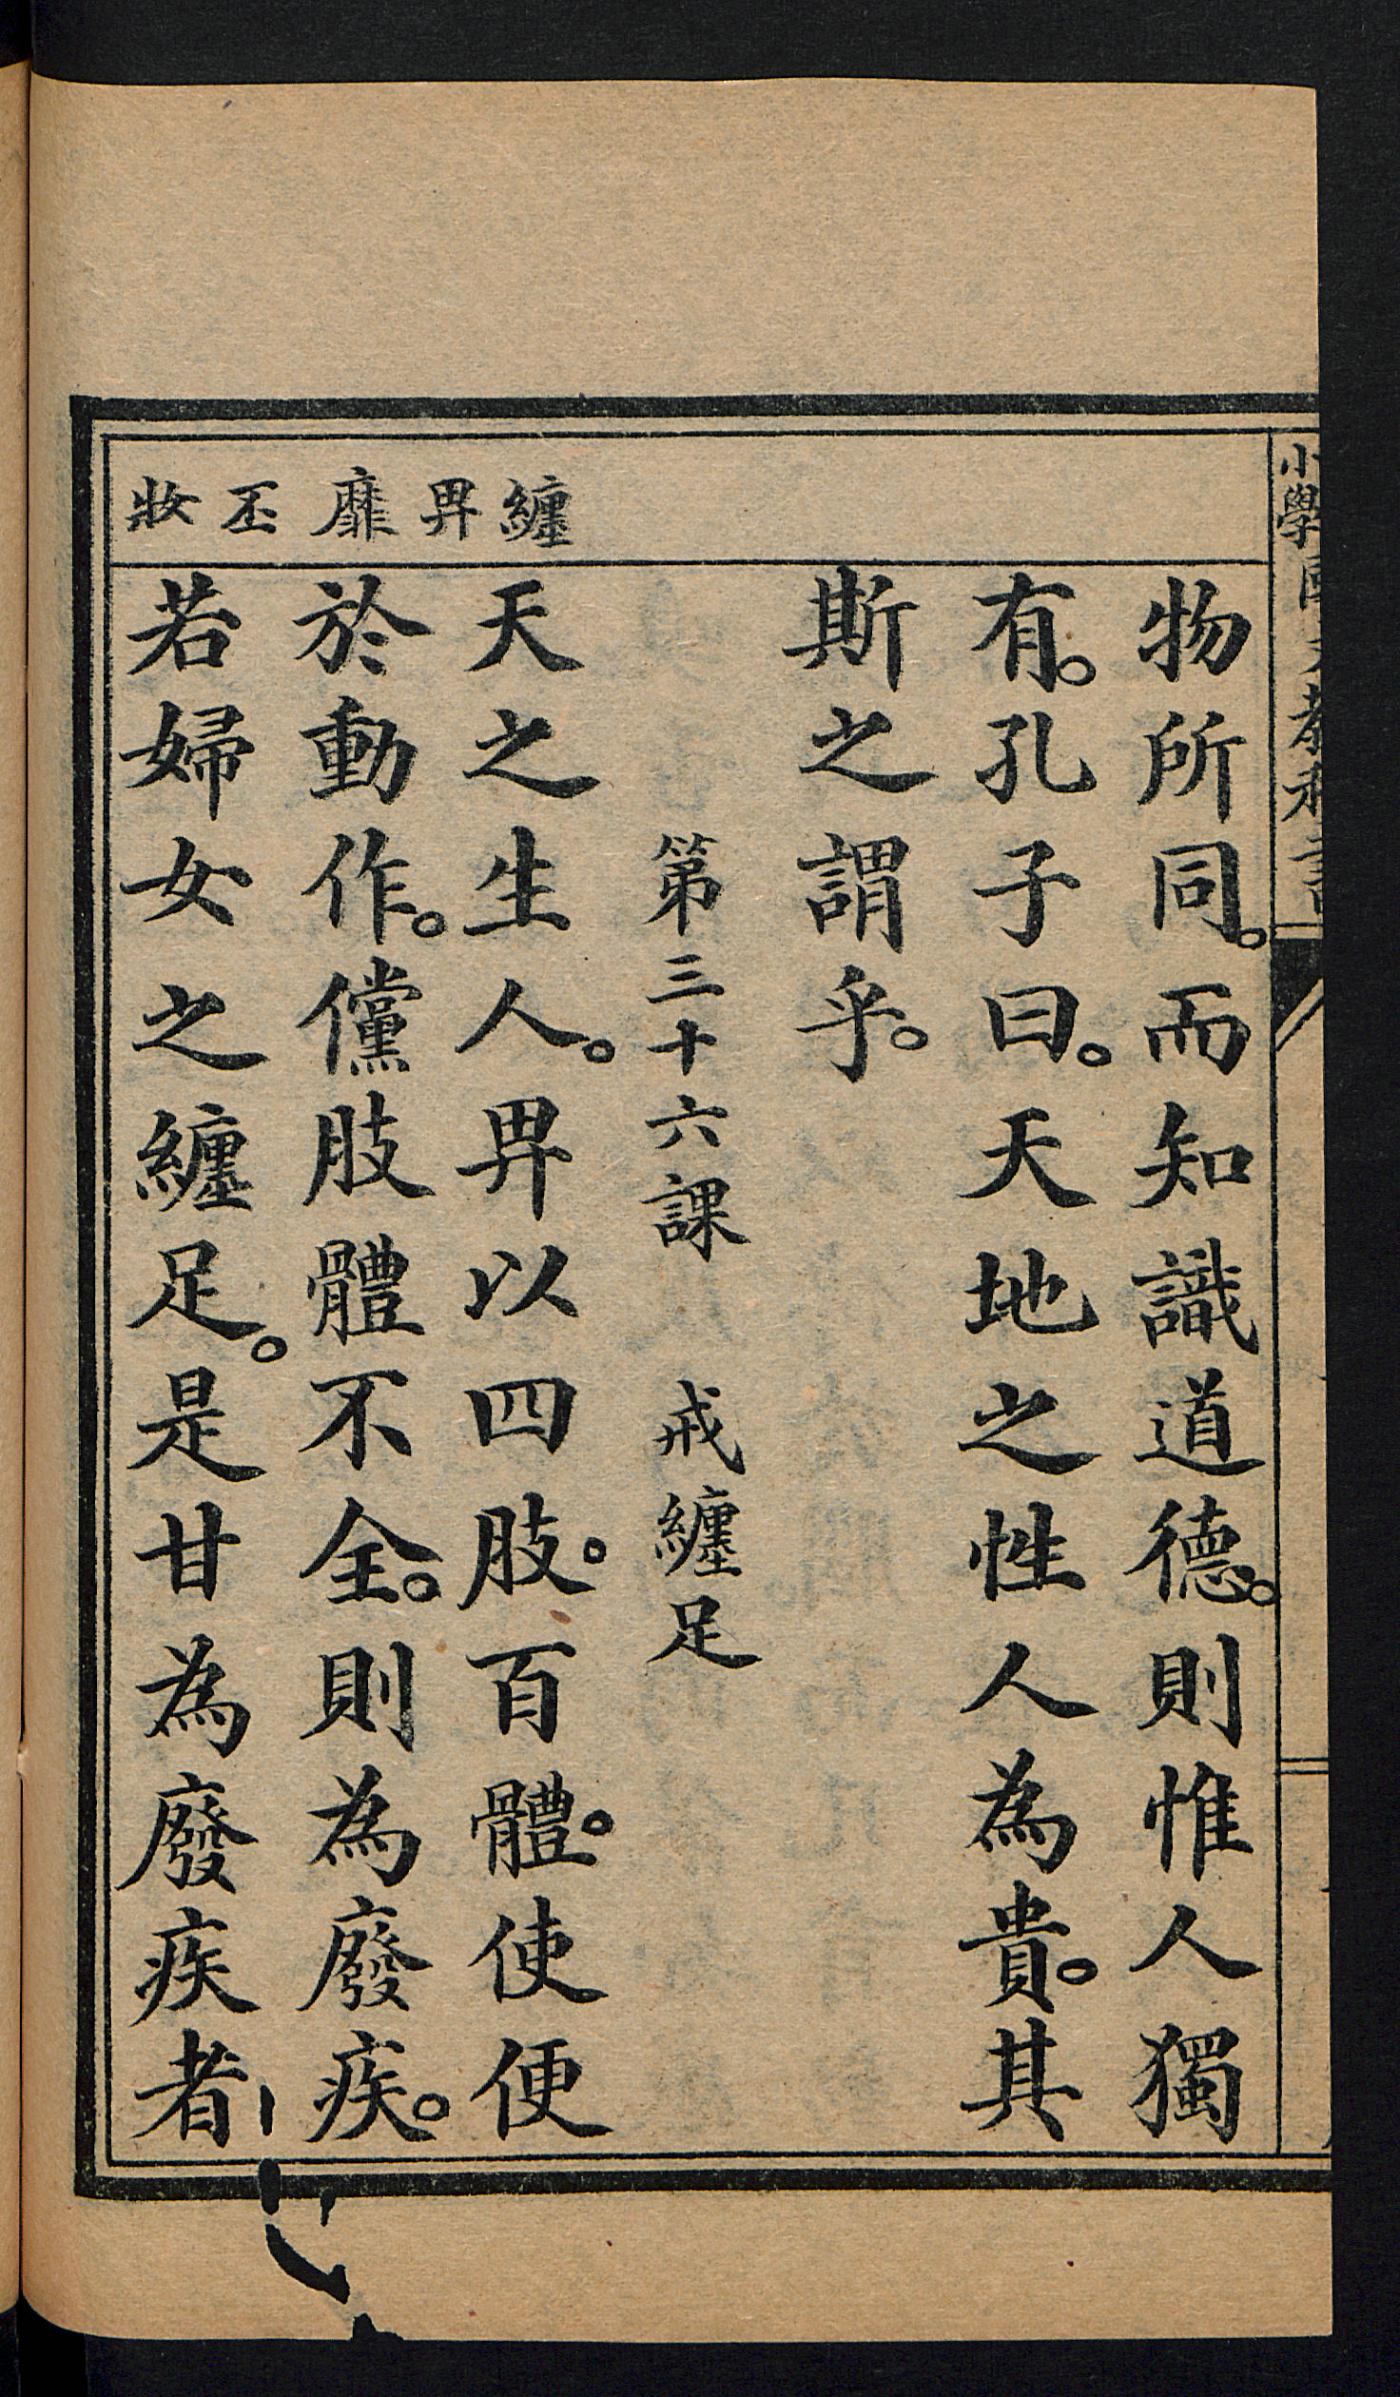 小學國文教科書
物所同。而知識道德。則惟人獨
有。孔子曰。天地之性人為貴。其
斯之謂乎。
第三十六課　戒纏足
纏畀靡丕妝
天之生人。畀以四肢。百體。使便
於動作。儻肢體不全。則為廢疾。
若婦女之纏足。是甘為廢疾者